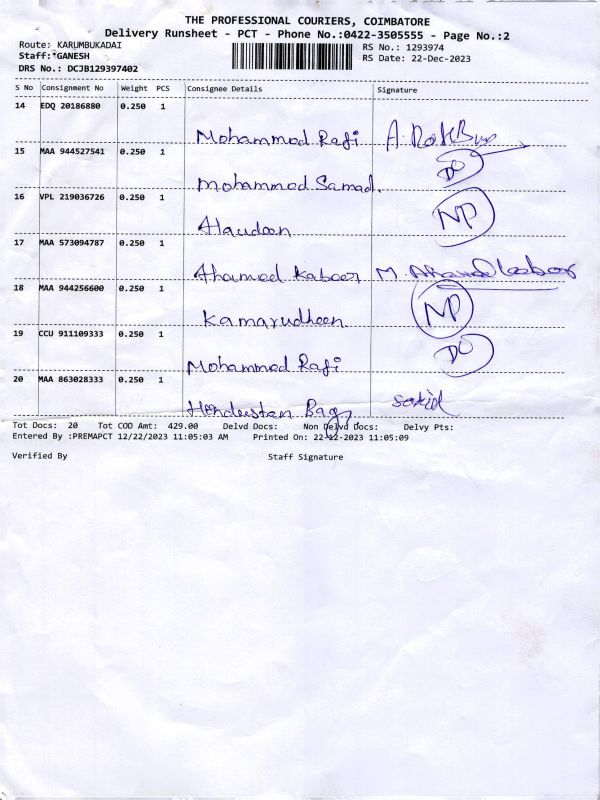 THE PROFESSIONAL COURIERS, COIMBATORE
Delivery Runsheet - PCT - Phone No.:0422-3505555 - Page No.:2
Route: KARUMBUKADAI
RS No.: 1293974
Staff:*GANESH
RS Date: 22-Dec-2023
DRS No.: DCJB129397402
S No Consignment No Weight PCS Consignee Details Signature
14 EDQ 20186880 0.250 1
Mohammed Rafi A.
15 MAA 944527541 0.250 1
Mohammed Samad.
16 VPL 219036726 0.250 1
Alaudeen NP
17 MAA 573094787 0.250 1
Ahamed Kabeer M.
18 MAA 944256600 0.250 1
Kamarudheen NP
19 CCU 911109333 0.250 1
Mohammed Rafi
20 MAA 863028333 0.250 1
Hindustan Bag
Tot Docs: 20 Tot COD Amt: 429.00 Delvd Docs: Non Delvd Docs: Delvy Pts:
Entered By :PREMAPCT 12/22/2023 11:05:03 AM Printed On: 22-12-2023 11:05:09
Verified By Staff Signature